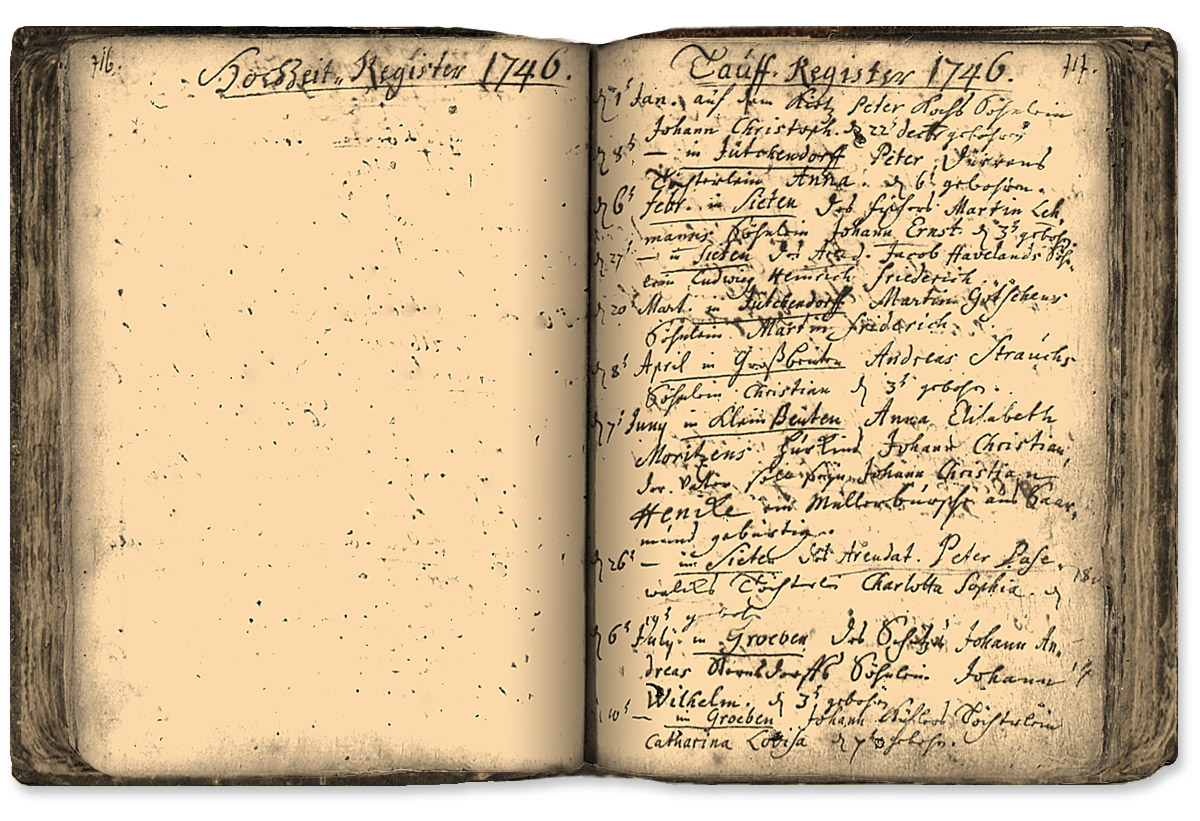 716.
Hochzeit-Register 1746.
Tauff-Register 1746.
717.
d 1t Jan. auf dem Kietz Peter Kochs Söhnlein
Johann Christoph. d 22t decbr gebohren
d 8t — in Jütchendorff Peter Dürrens
Töchterlein Anna. d 6t gebohren.
d 6t febr. in Sieten des fischers Martin Leh,
manns Söhnlein Johann Ernst d 3t gebohr.
d 27t — in Sieten des Arend. Jacob Havelands Söhn,
lein Ludwig Heinrich friederich
d 20t Mart. in Jütchendorff Martin Götschens
Söhnlein Martin friderich.
d 8t April in Großbeuten Andreas Strauchs
Söhnlein Christian d 3t gebohr.
d 7t Juny in Klein Beuten Anna Elisabeth
Moritzens Hurkind Johann Christian,
der Vater soll seyn Johann Christian
Hencke ein Müllerbursche aus Saar,
mund gebürtig.
d 26t — in Sieten des Arendat. Peter Pase,
walcks Töchterlein Charlotta Sophia d
19t gebohr
d 6t July in Groeben des Johann An,
dreas Söhnlein Johann
Wilhelm. d 3t gebohren
d 10t — in Groeben Johann Töchterlein
Catharina Lovisa d 7t gebohr.